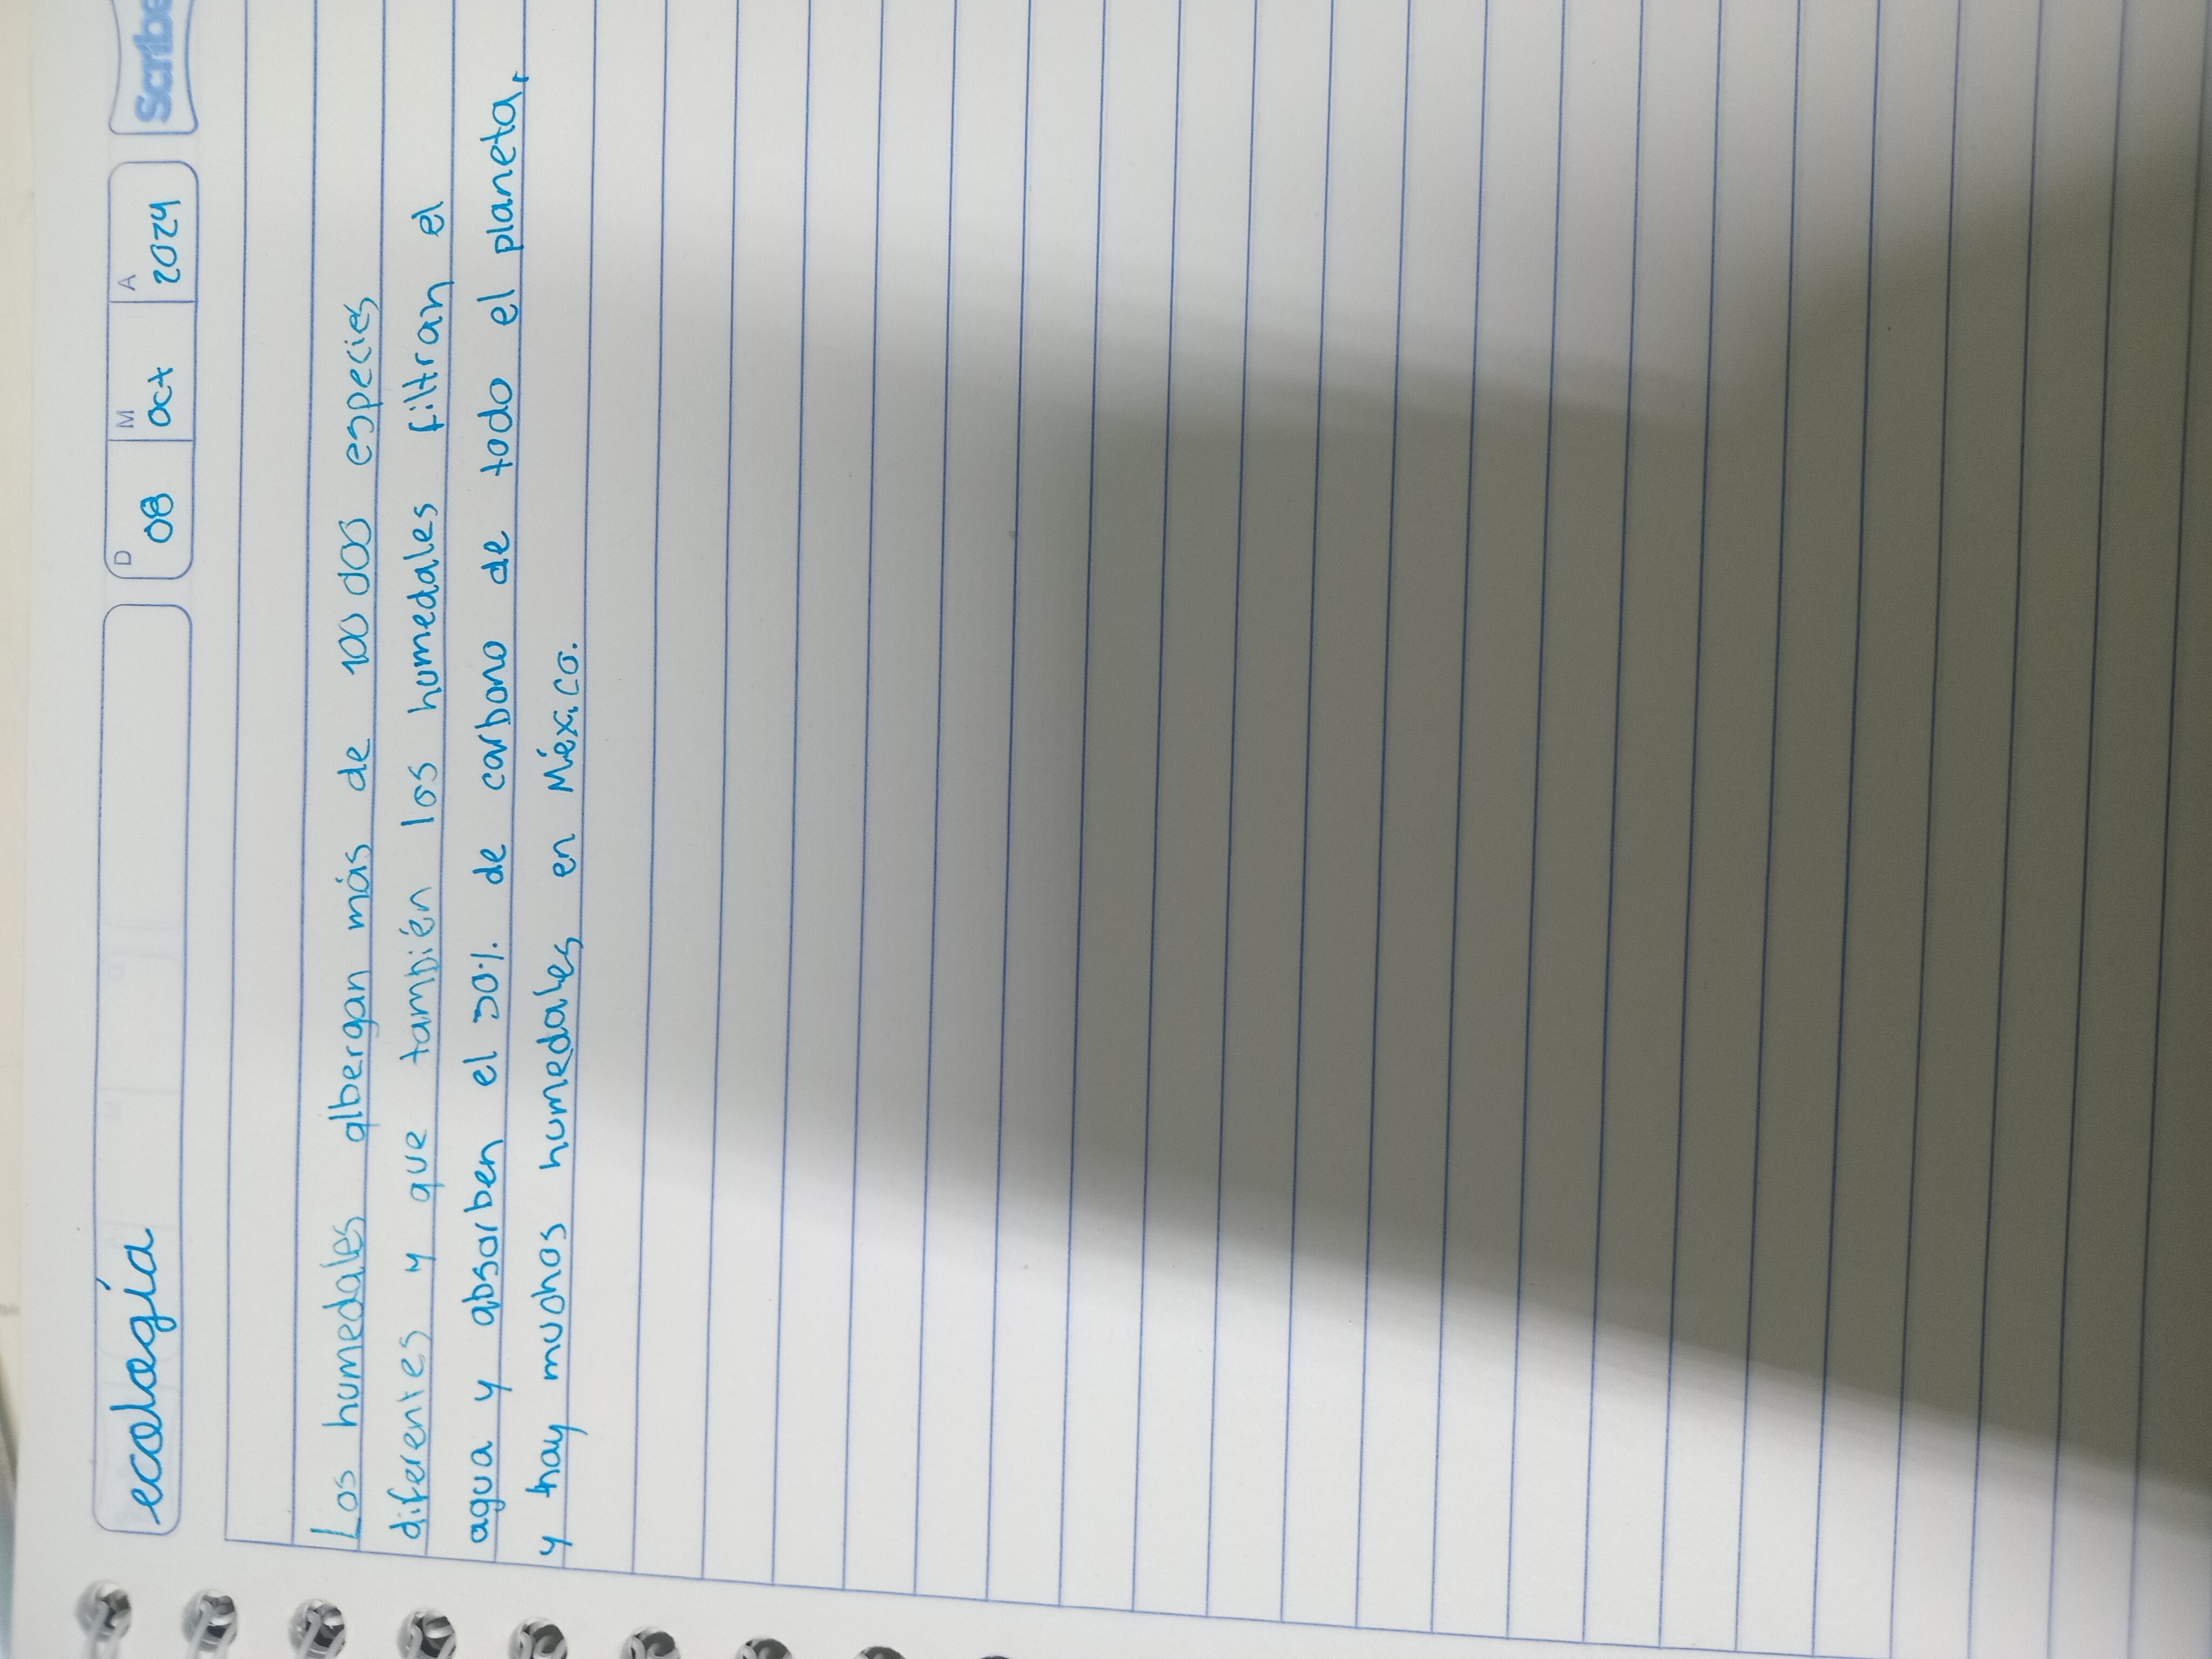 ecología
D M A
08 oct 2024
Scribe
Los humedales albergan más de 100 000 especies
diferentes y que también los humedales filtran el
agua y absorben el 30% de carbono de todo el planeta,
y hay muchos humedales en México.